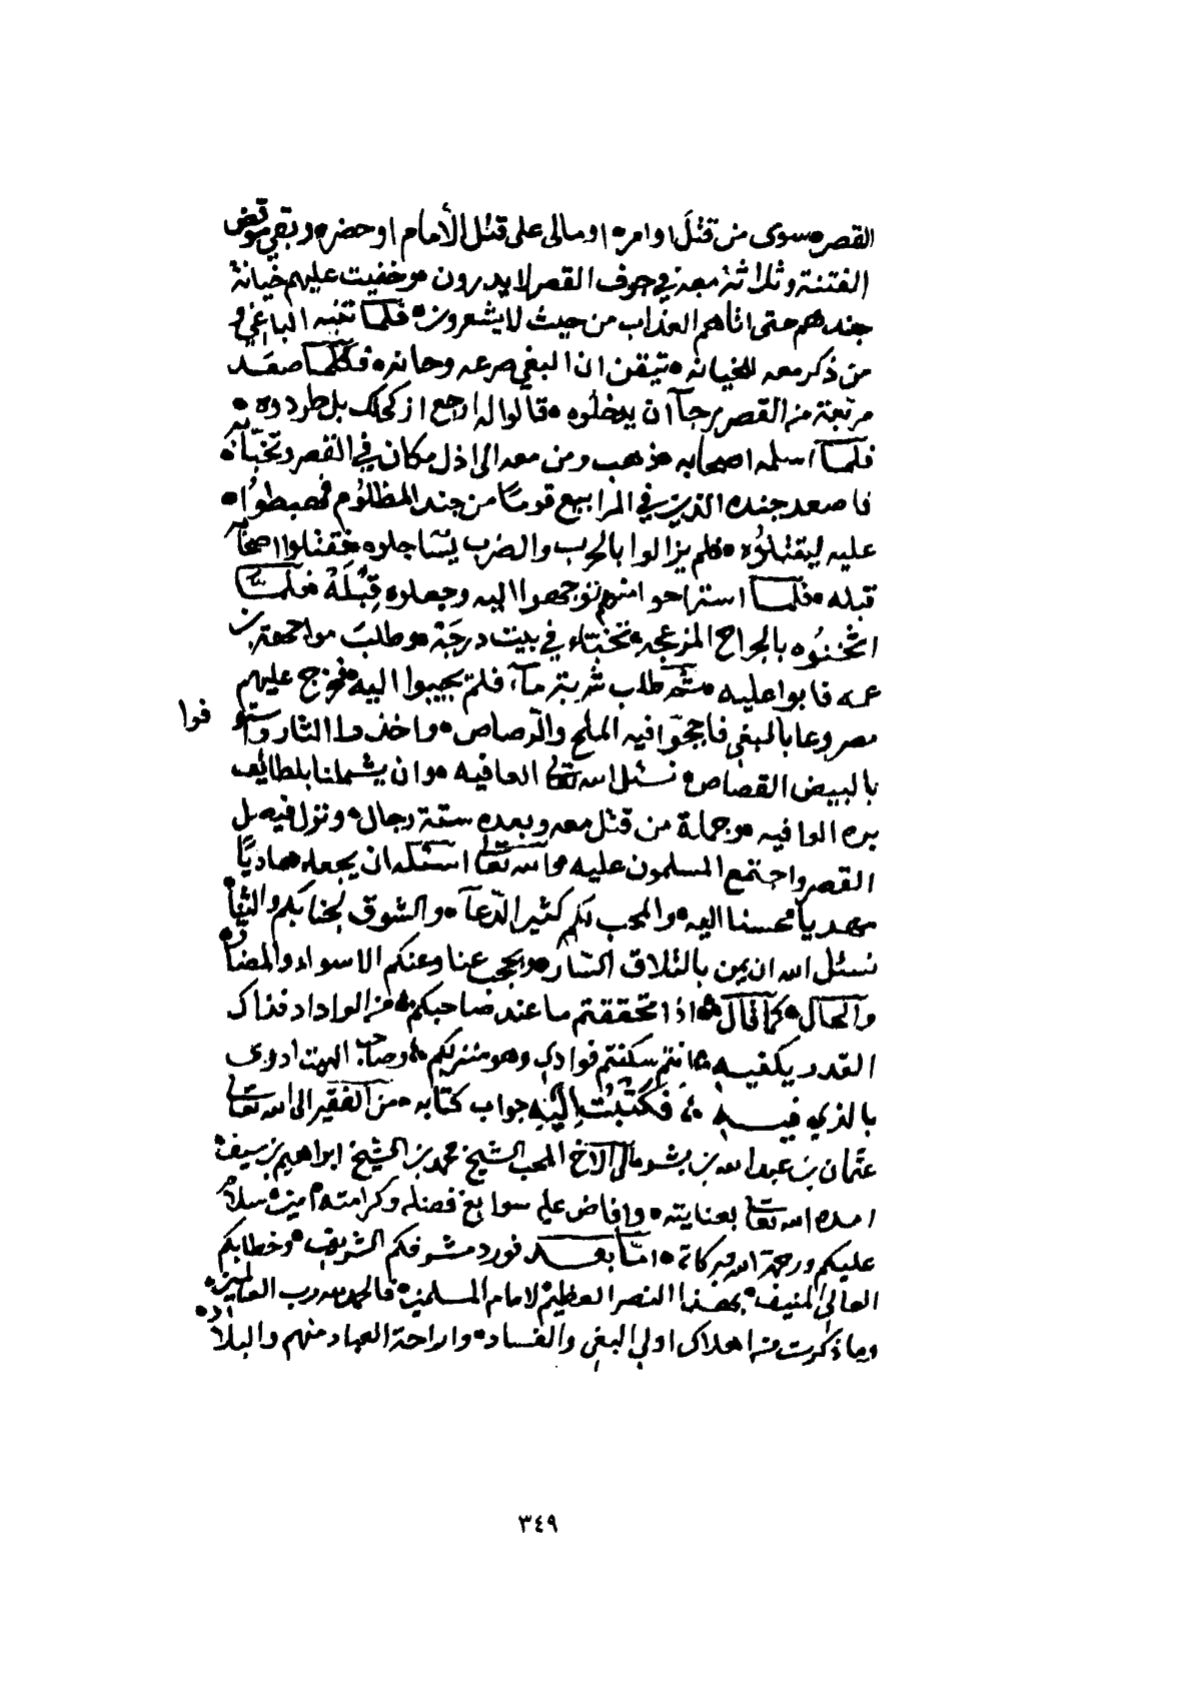 القصر سوى من قتل او امر او مالى على قتل الأمام او حضر وبقي موقض
الفتنة وثلاثة معه في جوف القصر لا يدرون وخفيت عليهم خيانة
جندهم حتى اتاهم العذاب من حيث لا يشعرون فلما تنبه الباغي و
من ذكر معه للخيانه تيقن ان البغي صرعه وحانه فكلما صعد
مربعة من القصر برجآ ان يدخلوه قالوا له ارجع بل طردوه
فلما اسلمه اصحابه ذهب ومن معه الى اذل مكان في القصر وتخبأ به
فاصعد جنده الذين في المرابيع قوماً من جند المظلوم فهبطوا
عليه ليقتلوه فلم يزالوا بالحرب والضرب يتساجلوه فقتلوا اصحابه
قبله فلما استراحوا منهم توجهوا اليه وجعلوه قبلة فلما
اثخنوه بالجراح المزعجه تخباء في بيت درجة وطلب مواجهة بن
عمه فابوا عليه ثم طلب شربة مآء فلم يجيبوا اليه فخرج عليهم
مصروعا بالبغي فاججوا فيه الملح والرصاص واخذوا الثار واستوفوا
بالبيض القصاص نسئل الله تعالى العافيه وان يشملنا بلطائف
بره الوافيه وجملة من قتل معه وبعده ستة رجال ونزل فيصل
القصر واجتمع المسلمون عليه والله تعالى اسئله ان يجعله هاديًا
مهديا محسنا اليه والمحب لكم كثير الدعآ والشوق لجنابكم والثنا
نسئل الله ان يمن بالتلاق السار ويحجب عنا وعنكم الاسواء والمضار
والحال كما قال اذا تحققتم ما عند صاحبكم من الوداد فذاك
القدر يكفيه انتم سكنتم فوادي وهو منزلكم وصاحب البيت ادرى
بالذي فيه فكتبت اليه جواب كتابه من الفقير الى الله تعالى
عثمان بن عبد الله بن بشر الى الاخ المحب الشيخ محمد بن الشيخ ابراهيم بن سيف
امده الله تعالى بعنايته وافاض عليه سوابغ فضله وكرامته امين سلام
عليكم ورحمة الله وبركاته اما بعد فورد مشرفكم الشريف وخطابكم
العالي المنيف بهذا النصر العظيم لامام المسلمين فالحمد لله رب العالمين
وما ذكرت من اهلاك اولي البغي والفساد واراحة العباد منهم والبلاد
٣٤٩